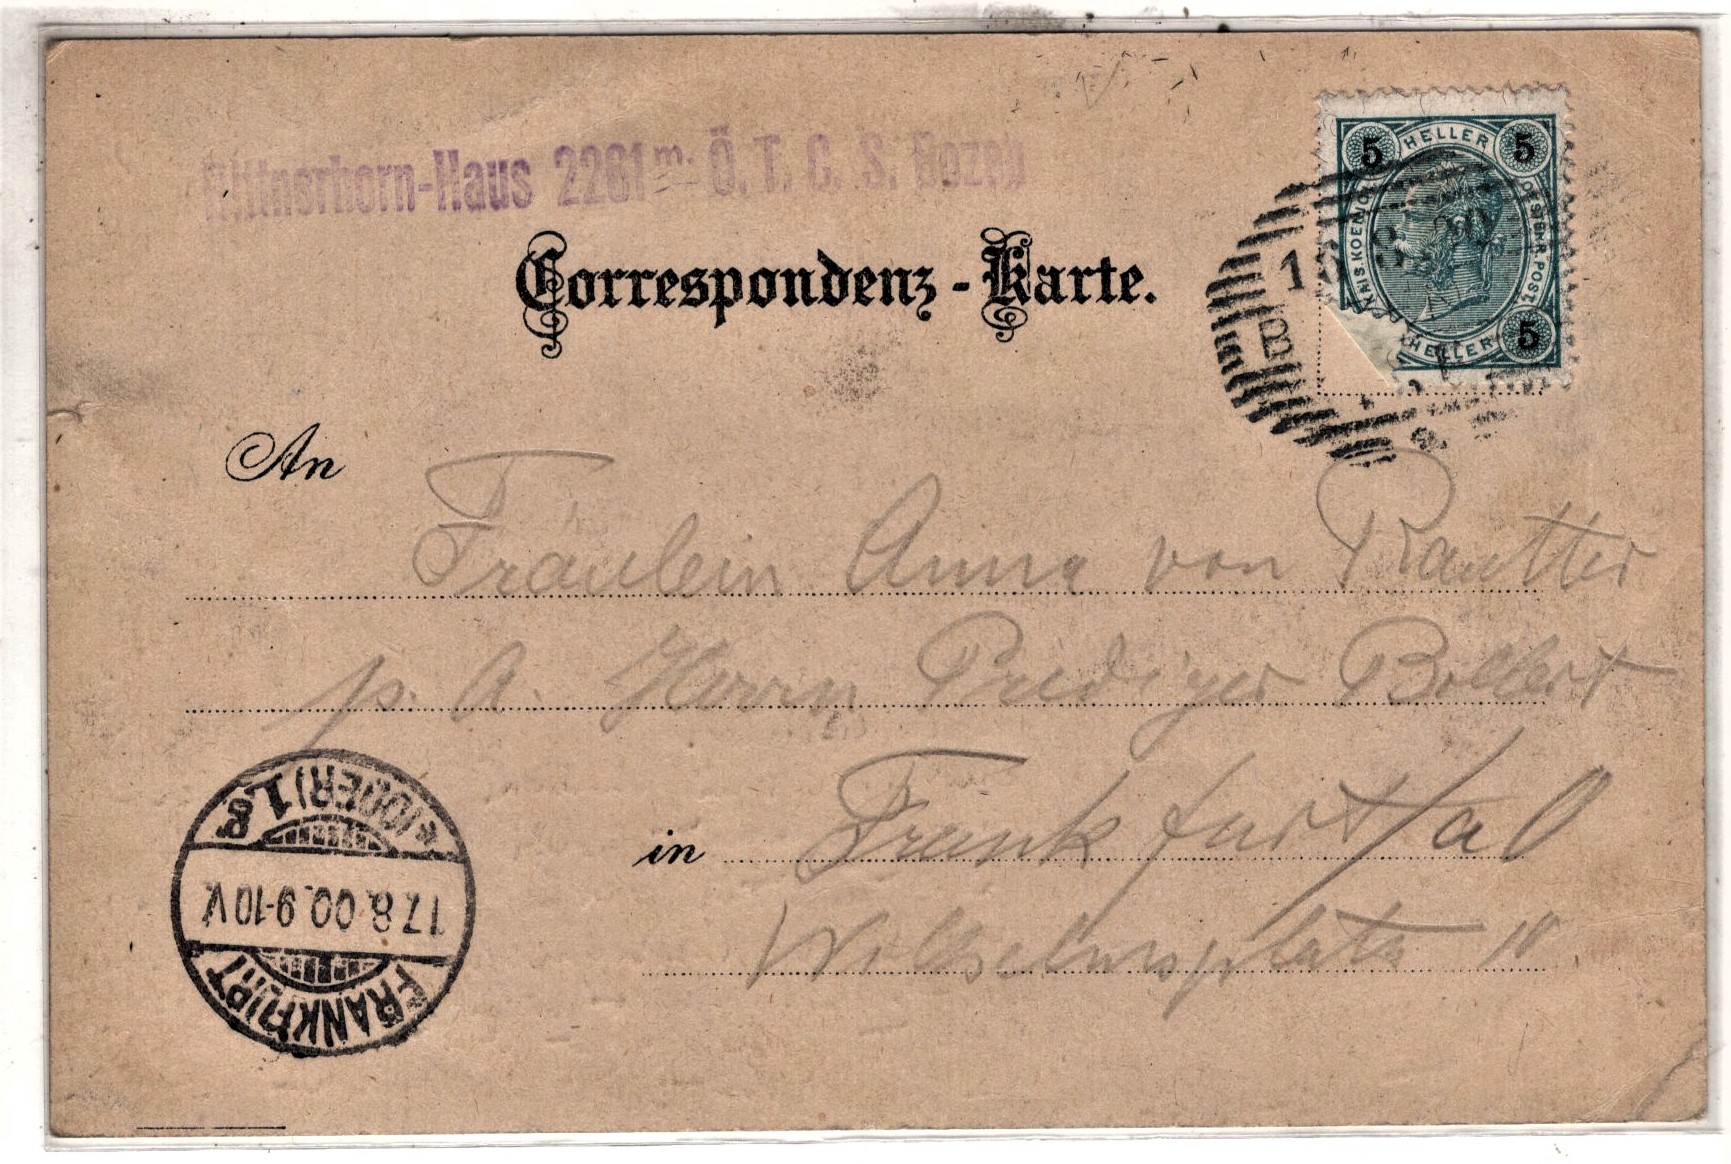 Rittnerhorn-Haus 2261 m. Ö. T. C. S. Bozen
Correspondenz-Karte.
5 HELLER 5
KAIS. KOENIGL. OESTERR. POST
HELLER 5
An
Fräulein Anna von Rautter
p. A. Herrn Prediger Bollert
in Frankfurt/a O
Wilhelmsplatz
FRANKFURT
17.8.00. 9-10 V.
(ODER) 1.g